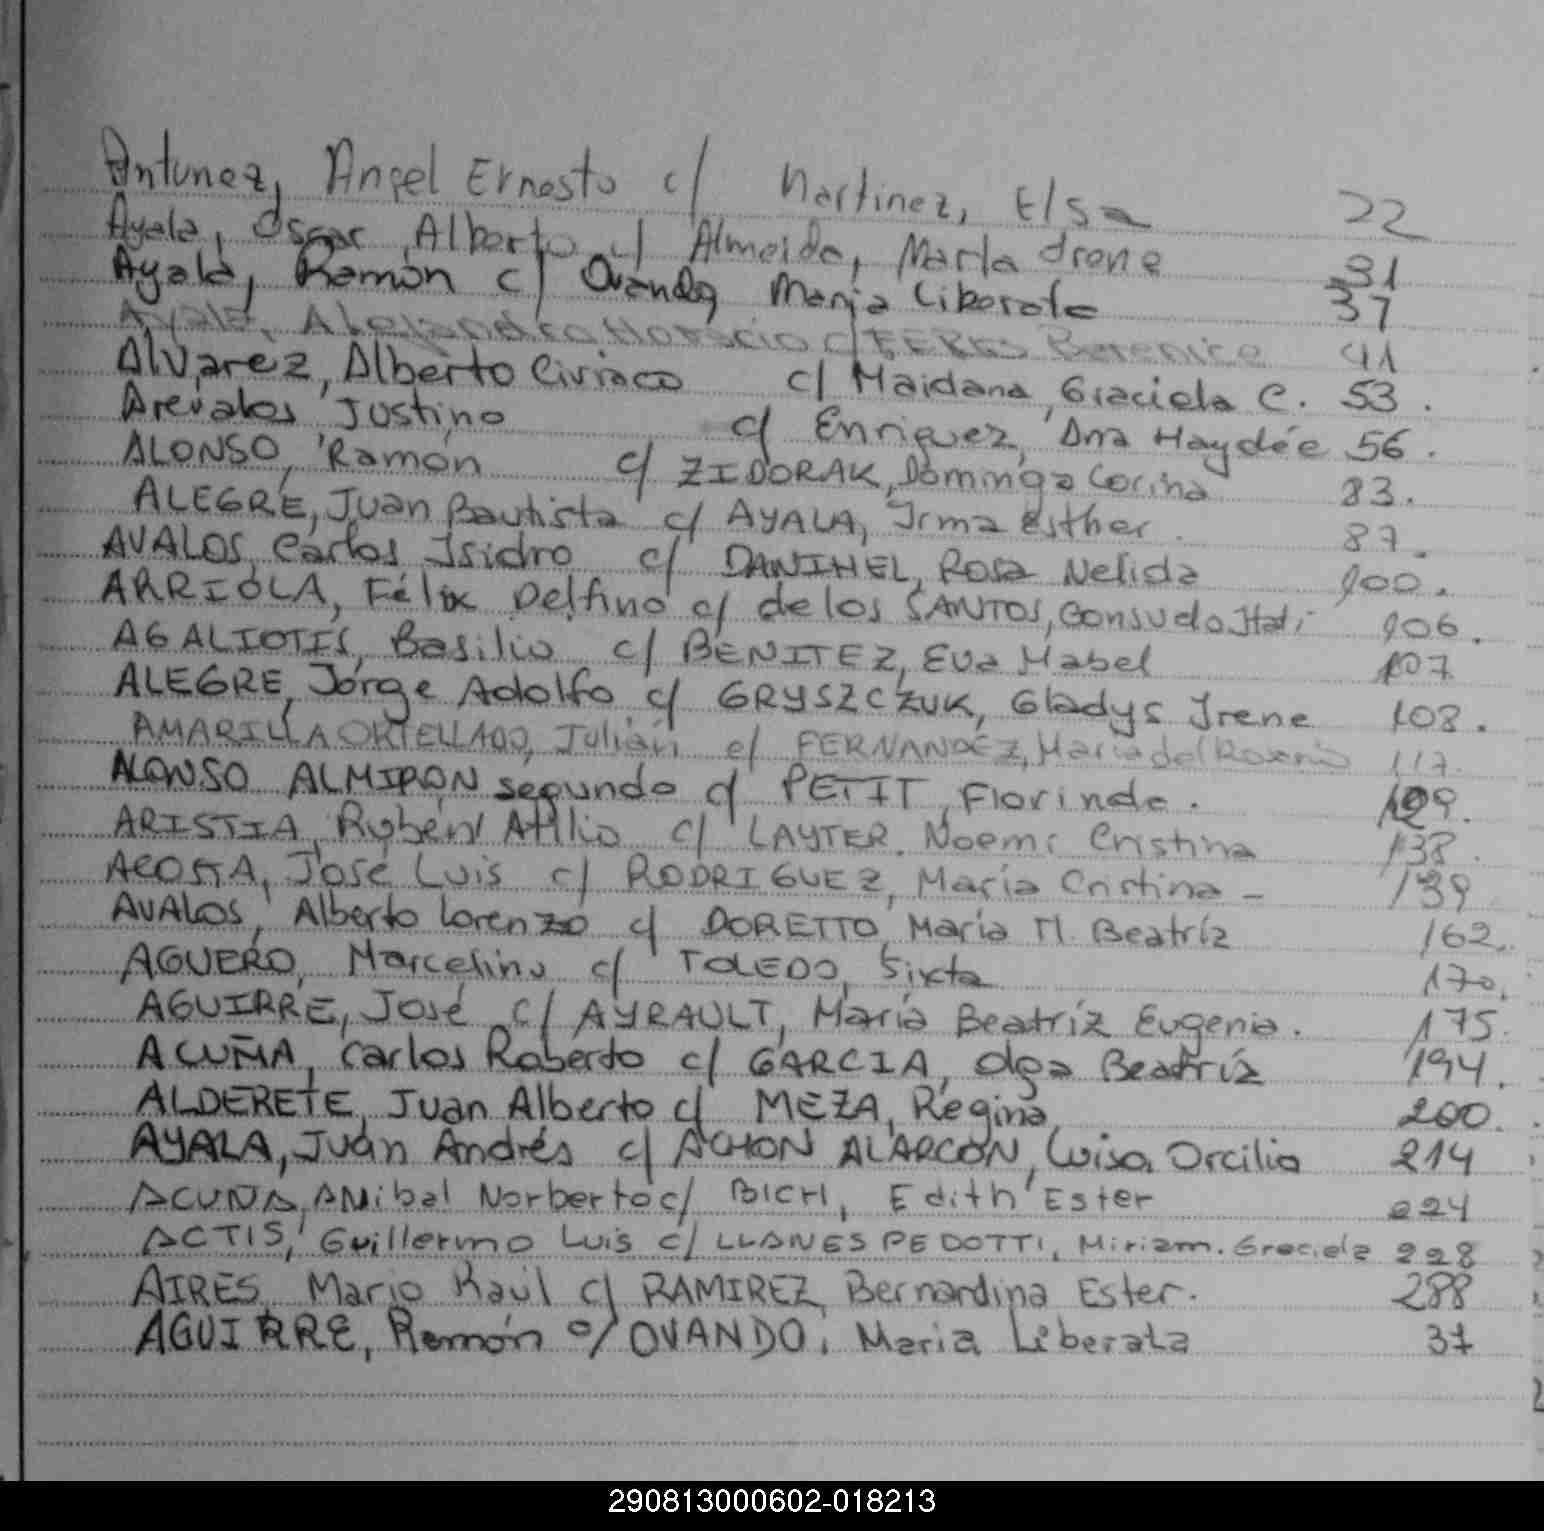 Antunez, Angel Ernesto c/ Martinez, Elsa 22
Ayala, Oscar Alberto c/ Almeida, Marta Irene 31
Ayala, Ramón c/ Ovando, Maria Liberata 37
Ayala, Alejandro Horacio c/ FERES Berenice 41
Alvarez, Alberto Ciriaco c/ Maidana, Graciela C. 53.
Arevalos, Justino c/ Enriquez, Ana Haydée 56.
ALONSO, Ramón c/ ZIDORAK, Dominga Corina 83.
ALEGRE, Juan Bautista c/ AYALA, Irma Esther. 87.
AVALOS, Carlos Isidro c/ DANIHEL, Rosa Nelida 100.
ARRIOLA, Félix Delfino c/ de los SANTOS, Consuelo Itatí 106.
AGALIOTIS, Basilio c/ BENITEZ, Eva Mabel 107
ALEGRE, Jorge Adolfo c/ GRYSZCZUK, Gladys Irene 108.
AMARILLA ORTELLADO, Julián c/ FERNANDEZ, Maria del Rosario 117.
ALONSO ALMIRON segundo c/ PETIT, Florinda. 109.
ARISTIA, Rubén Atilio c/ LAYTER, Noemi Cristina 138.
ACOSTA, José Luis c/ RODRIGUEZ, María Cristina - 139
AVALOS, Alberto Lorenzo c/ DORETTO, María M. Beatríz 162.
AGUERO, Marcelino c/ TOLEDO, Sixta 170.
AGUIRRE, José c/ AYRAULT, María Beatríz Eugenia. 175.
ACUÑA, Carlos Roberto c/ GARCIA, Olga Beatríz 194.
ALDERETE, Juan Alberto c/ MEZA, Regina 200.
AYALA, Juan Andrés c/ ACHON ALARCON, Luisa Orcilia 214
ACUÑA, ANibal Norberto c/ BICHI, Edith Ester 224
ACTIS, Guillermo Luis c/ LLANES PEDOTTI, Miriam. Graciela 228
AIRES, Mario Raúl c/ RAMIREZ, Bernardina Ester. 288
AGUIRRE, Ramón c/ OVANDO, Maria Liberata 37
290813000602-018213